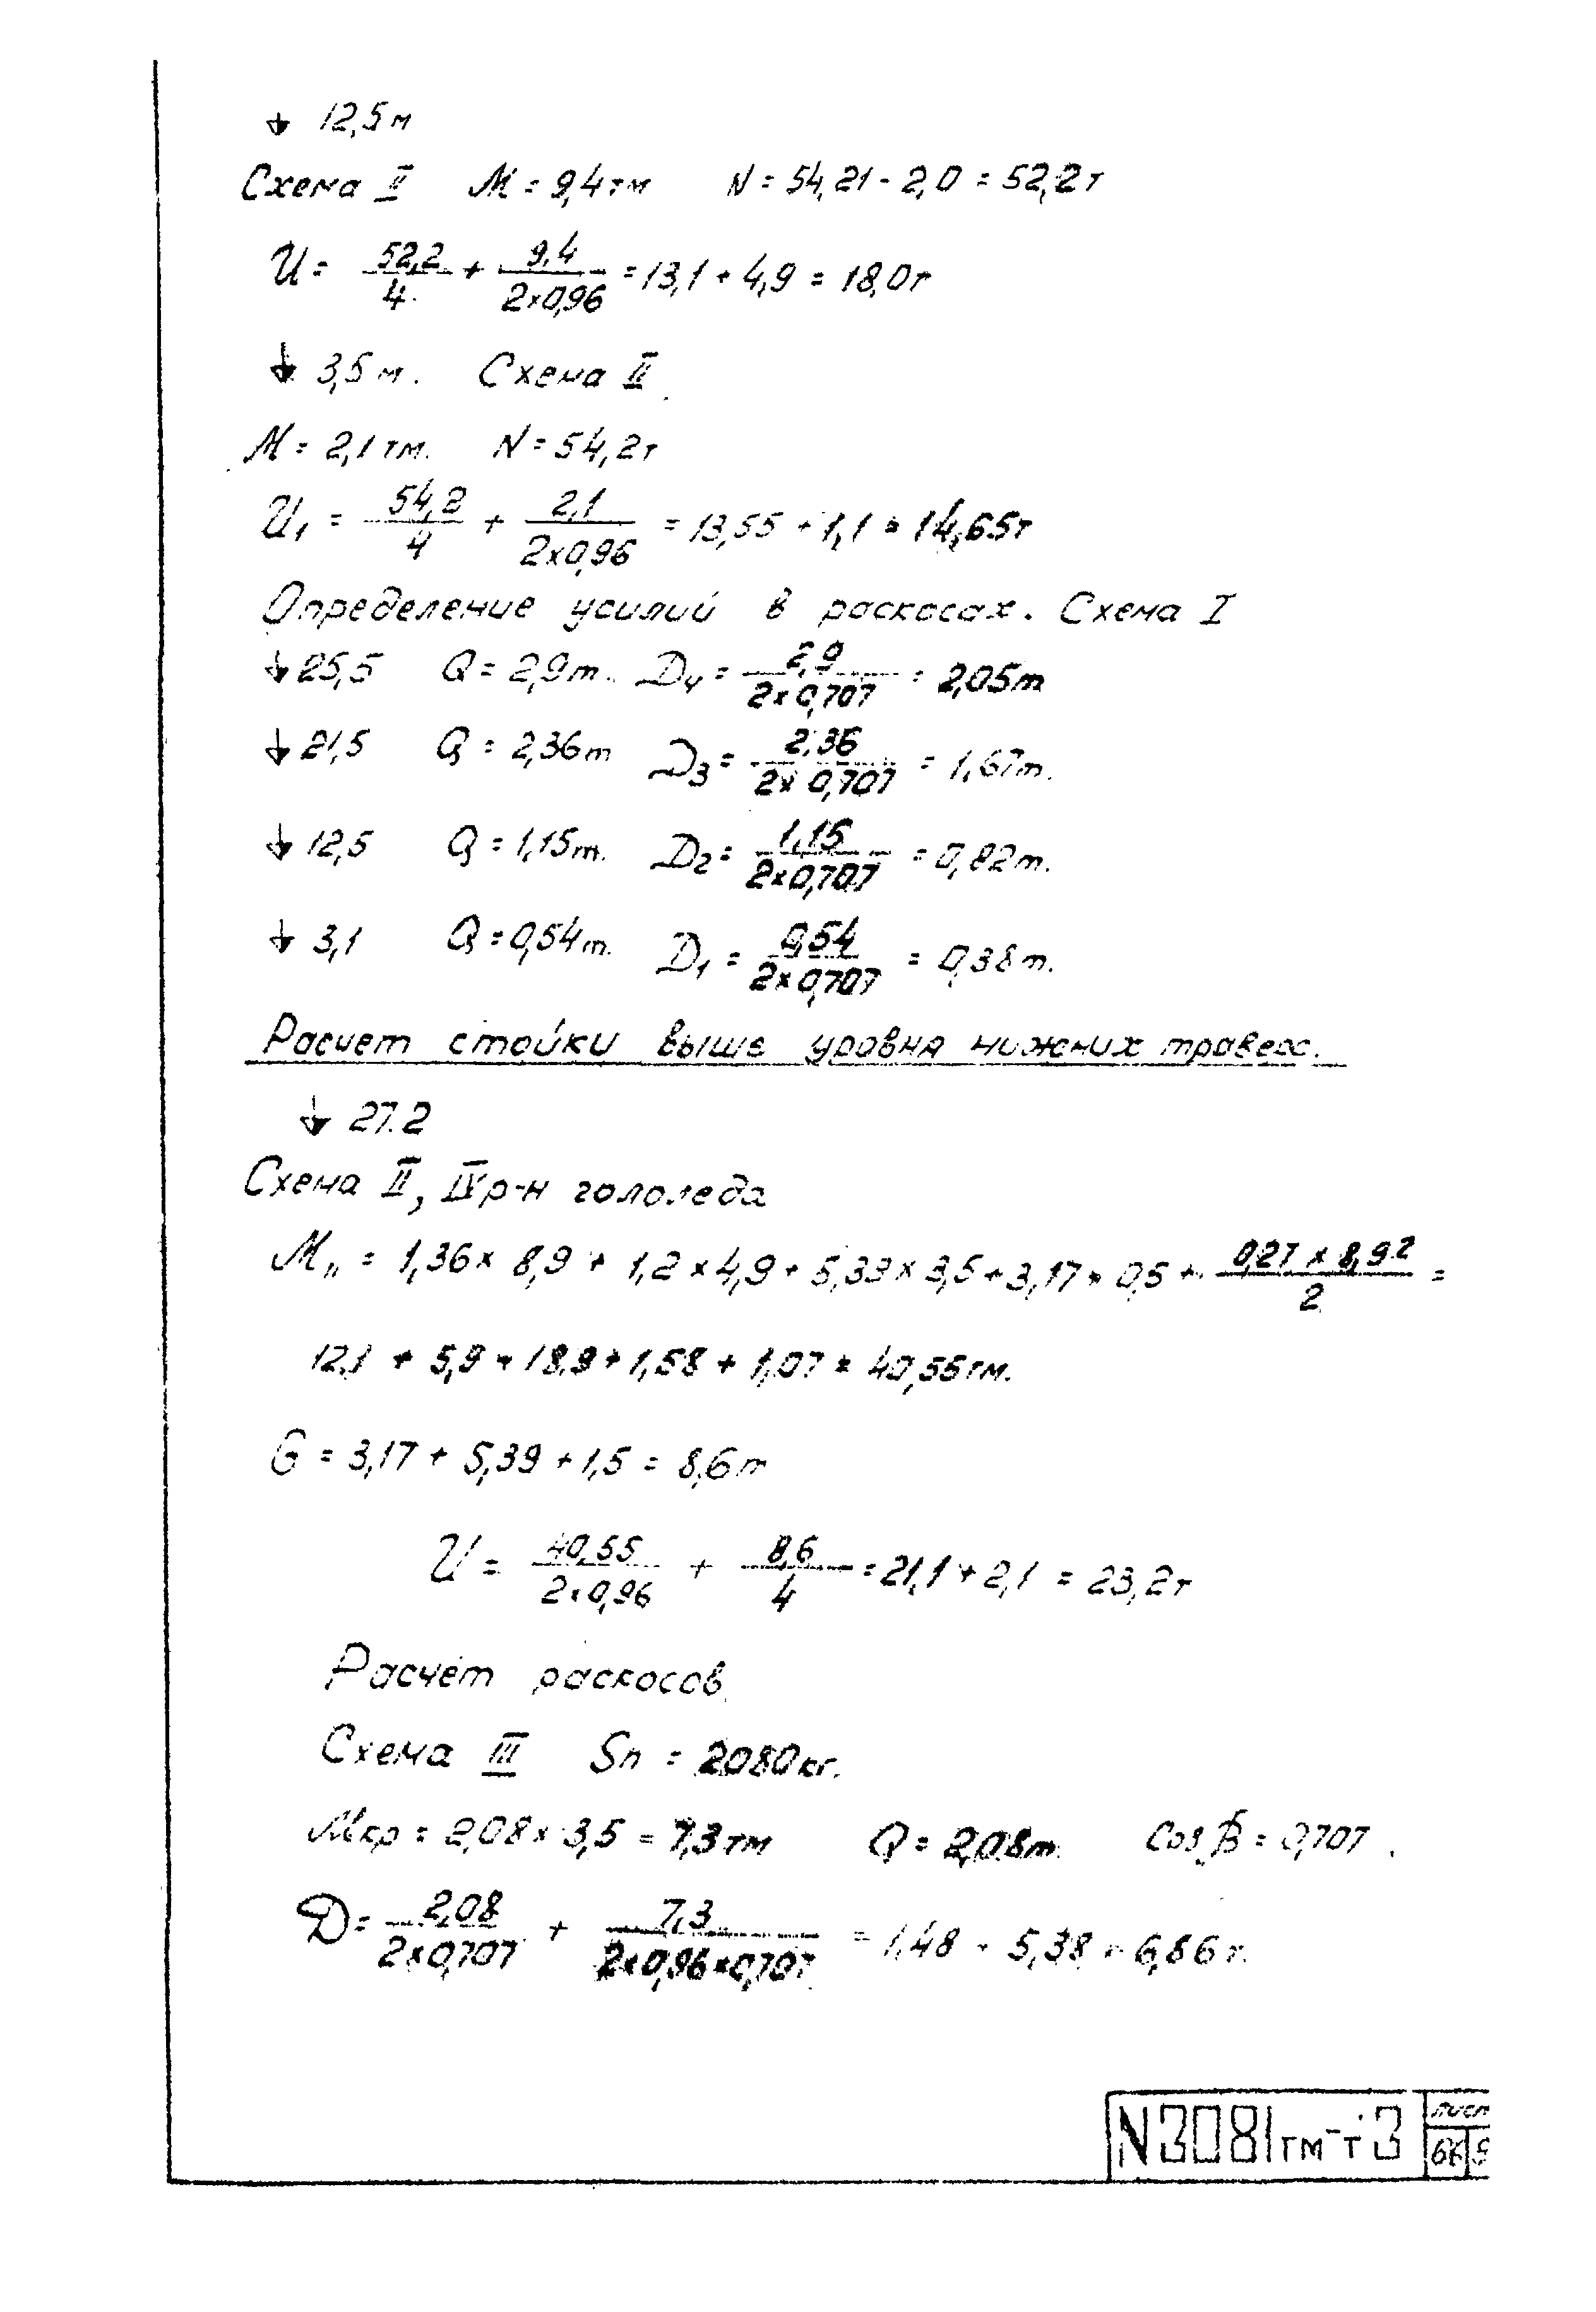 ↓ 12,5 м
Схема II M = 9,4 тм N = 54,21 - 2,0 = 52,2 т
U = 52,2/4 + 9,4/2×0,96 = 13,1 + 4,9 = 18,0 т
↓ 3,5 м. Схема II
M = 2,1 тм. N = 54,2 т
U₁ = 54,2/4 + 2,1/2×0,96 = 13,55 + 1,1 = 14,65 т
Определение усилий в раскосах. Схема I
↓ 25,5 Q = 2,9 т. D₄ = 2,9/2×0,707 = 2,05 т
↓ 21,5 Q = 2,36 т D₃ = 2,36/2×0,707 = 1,67 т.
↓ 12,5 Q = 1,15 т. D₂ = 1,15/2×0,707 = 0,82 т.
↓ 3,1 Q = 0,54 т. D₁ = 0,54/2×0,707 = 0,38 т.
Расчет стойки выше уровня нижних траверс.
↓ 27.2
Схема II, IV р-н гололеда
Mп = 1,36 × 8,9 + 1,2 × 4,9 + 5,39 × 3,5 + 3,17 × 0,5 + 0,27 × 8,9²/2 =
12,1 + 5,9 + 18,9 + 1,58 + 1,07 = 40,55 тм.
G = 3,17 + 5,39 + 1,5 = 8,6 т
U = 40,55/2×0,96 + 8,6/4 = 21,1 + 2,1 = 23,2 т
Расчет раскосов
Схема III Sп = 2080 кг.
Mкр = 2,08 × 3,5 = 7,3 тм Q = 2,08 т. Cos β = 0,707
D = 2,08/2×0,707 + 7,3/2×0,96×0,707 = 1,48 + 5,38 = 6,86 т.
лист
N3081тм-т3